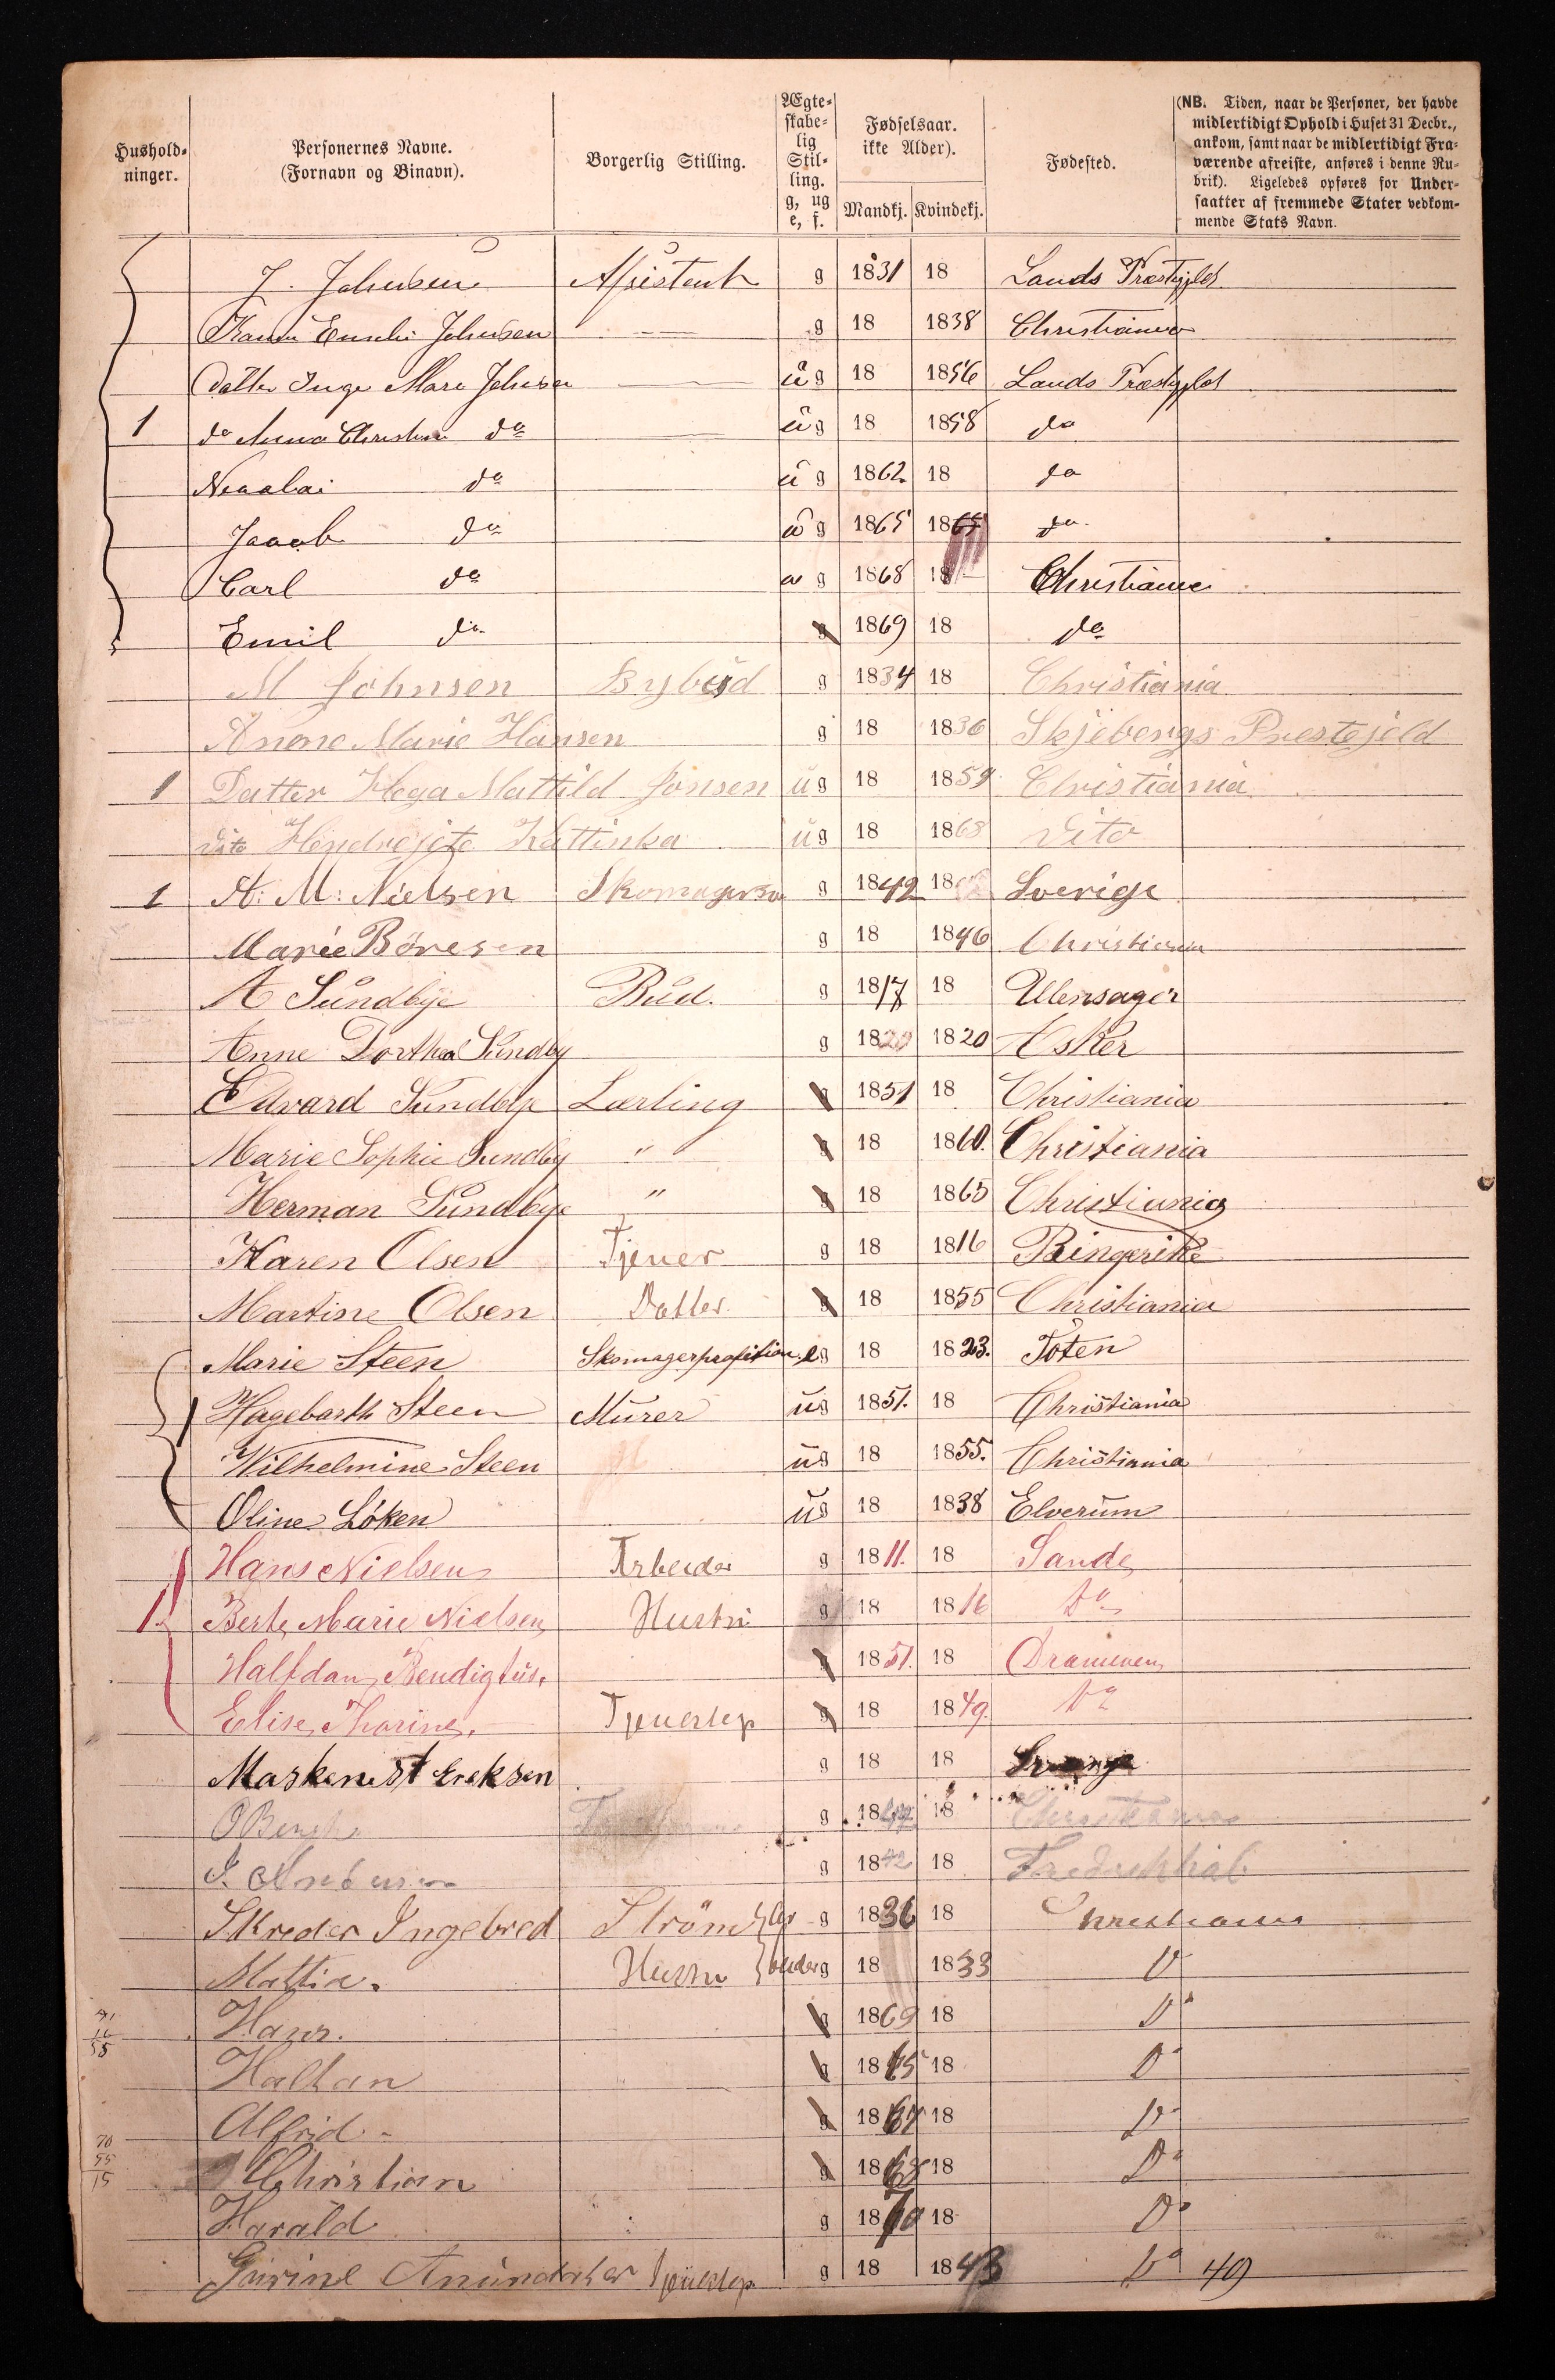 Hushold-
ninger.
Personernes Navne.
(Fornavn og Binavn).
Borgerlig Stilling.
Ægte-
skabe-
lig
Stil-
ling.
g, ug
e, f.
Fødselsaar.
ikke Alder).
Mandkj. Kvindekj.
Fødested.
(NB. Tiden, naar de Personer, der havde
midlertidigt Ophold i Huset 31 Decbr.,
ankom, samt naar de midlertidigt Fra-
værende afreiste, anføres i denne Ru-
brik). Ligeledes opføres for Under-
saatter af fremmede Stater vedkom-
mende Stats Navn.
J. Johnsen Assistent g 1831 18 Lands Præstgjeld
Emilie Johnsen g 18 1838 Christiania
Datter Inge Mare Johnsen ug 18 1856 Lands Præstgjeld
1 do Anna Christine do ug 18 1858 do
Nicolai do ug 1862 18 do
Jacob do ug 1865 18 do
Carl do ug 1868 18 Christiania
Emil do g 1869 18 do
M Johnsen Bybud g 1834 18 Christiania
Anone Marie Hansen g 18 1836 Skjebergs Prestejeld
1 Datter Hega Mattild Jonsen ug 18 1859 Christiania
dito Hendrejete Kattinka ug 18 1868 Dito
1 A: M: Nielsen Skomagersv g 1842 18 Sverige
MarieBöresen g 18 1846 Christiania
A Sundbye Bud. g 1817 18 Ullensager
Anne Dorthea Sundby g 18 1820 Asker
Edvard Sundbye Lærling g 1851 18 Christiania
Marie Sophie Sundby " g 18 1860. Christiania
Herman Sundbye " g 18 1865 Christiania
Karen Olsen Tjener g 18 1816 Ringerike
Martine Olsen Datter g 18 1855 Christiania
Marie Steen Skomagerprofision. eg 18 1823. Toten
1 Hagebarth Steen Murer ug 1851. 18 Christiania
Wilhelmine Steen ug 18 1855. Christiania
Oline Löken ug 18 1838 Elverum
Hans Nielsen Arbeider g 1811. 18 Sande
1. Berte Marie Nielsen Hustru g 18 1816 Do
Halfdan Bendigtus. g 1851. 18 Drammen
Elise Thorine. Tjenestep g 18 1849. Do
Maskenist Ereksen g 18 18
O g 18 18 Christiania
g 1842 18 Fredrikhal
Skreder Ingebred Ström g 1836 18 Christiania
Mattia. Hustru g 18 1833 D
Hans. g 1869 18 Do
Halfan g 1865 18 Do
Alfrid g 18 18 Do
Christian g 18 18 Do
Harald g 1870 18 Do
Gurine Tjenestep g 18 1843 Do 49
16
58
70
55
15